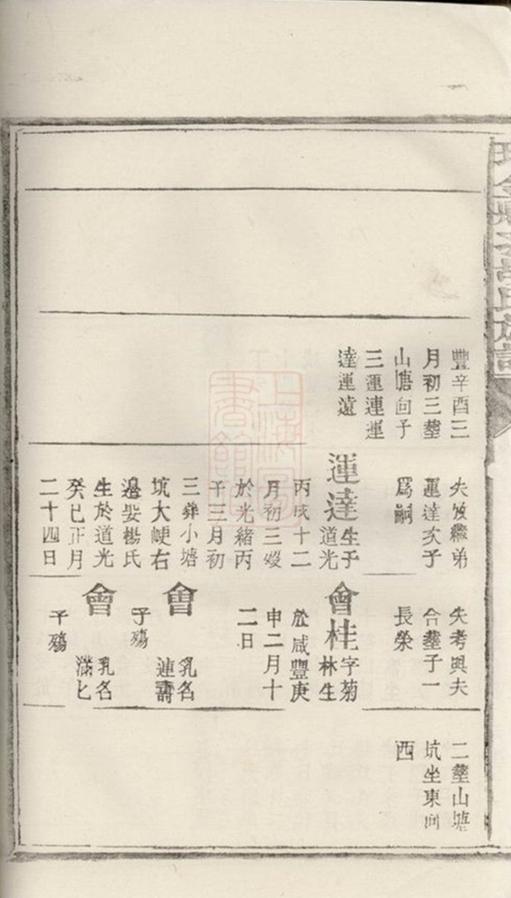 氏族譜
豐辛酉三
月初三塟
山塘回子
三運連運
達運遠
失攷繼弟
運達次子
爲嗣
運達生于道光
丙戌十二
月初三歿
於光緒丙
子三月初
三葬小塘
坑大右
邉娶楊氏
生於道光
癸巳正月
二十四日
失考與夫
合塟子一
長榮
會桂字菊林生
於咸豐庚
申二月十
二日
會乳名連壽
子殤
會乳名滿七
子殤
二塟山塘
坑坐東向
西
上海圖書館